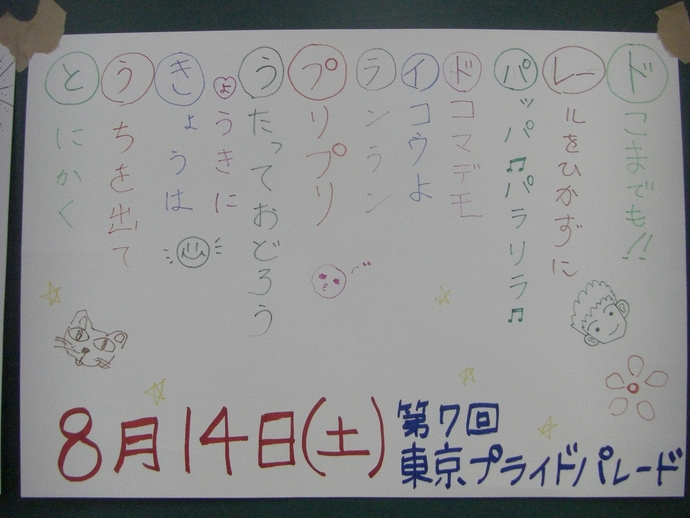 とにかく
うちを出て
きょうは
ようきに
うたっておどろう
プリプリ
ランラン
イコウよ
ドコマデモ
パッパ♫パラリラ♫
レールをひかずに
ドこまでも!!
8月14日(土)
第7回
東京プライドパレード